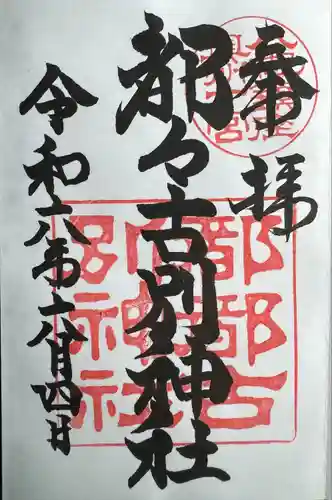 奉拝
都々古別神社
令和六年十一月四日
都都古別神社